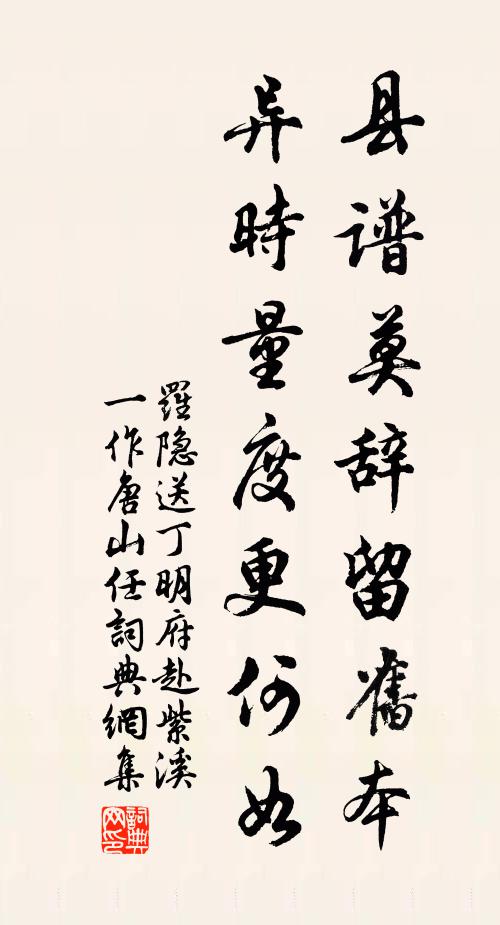 县谱莫辞留舊本
异時量度更何如
羅隐送丁明府赴紫溪
一作唐山任詞典網集
詞典网印